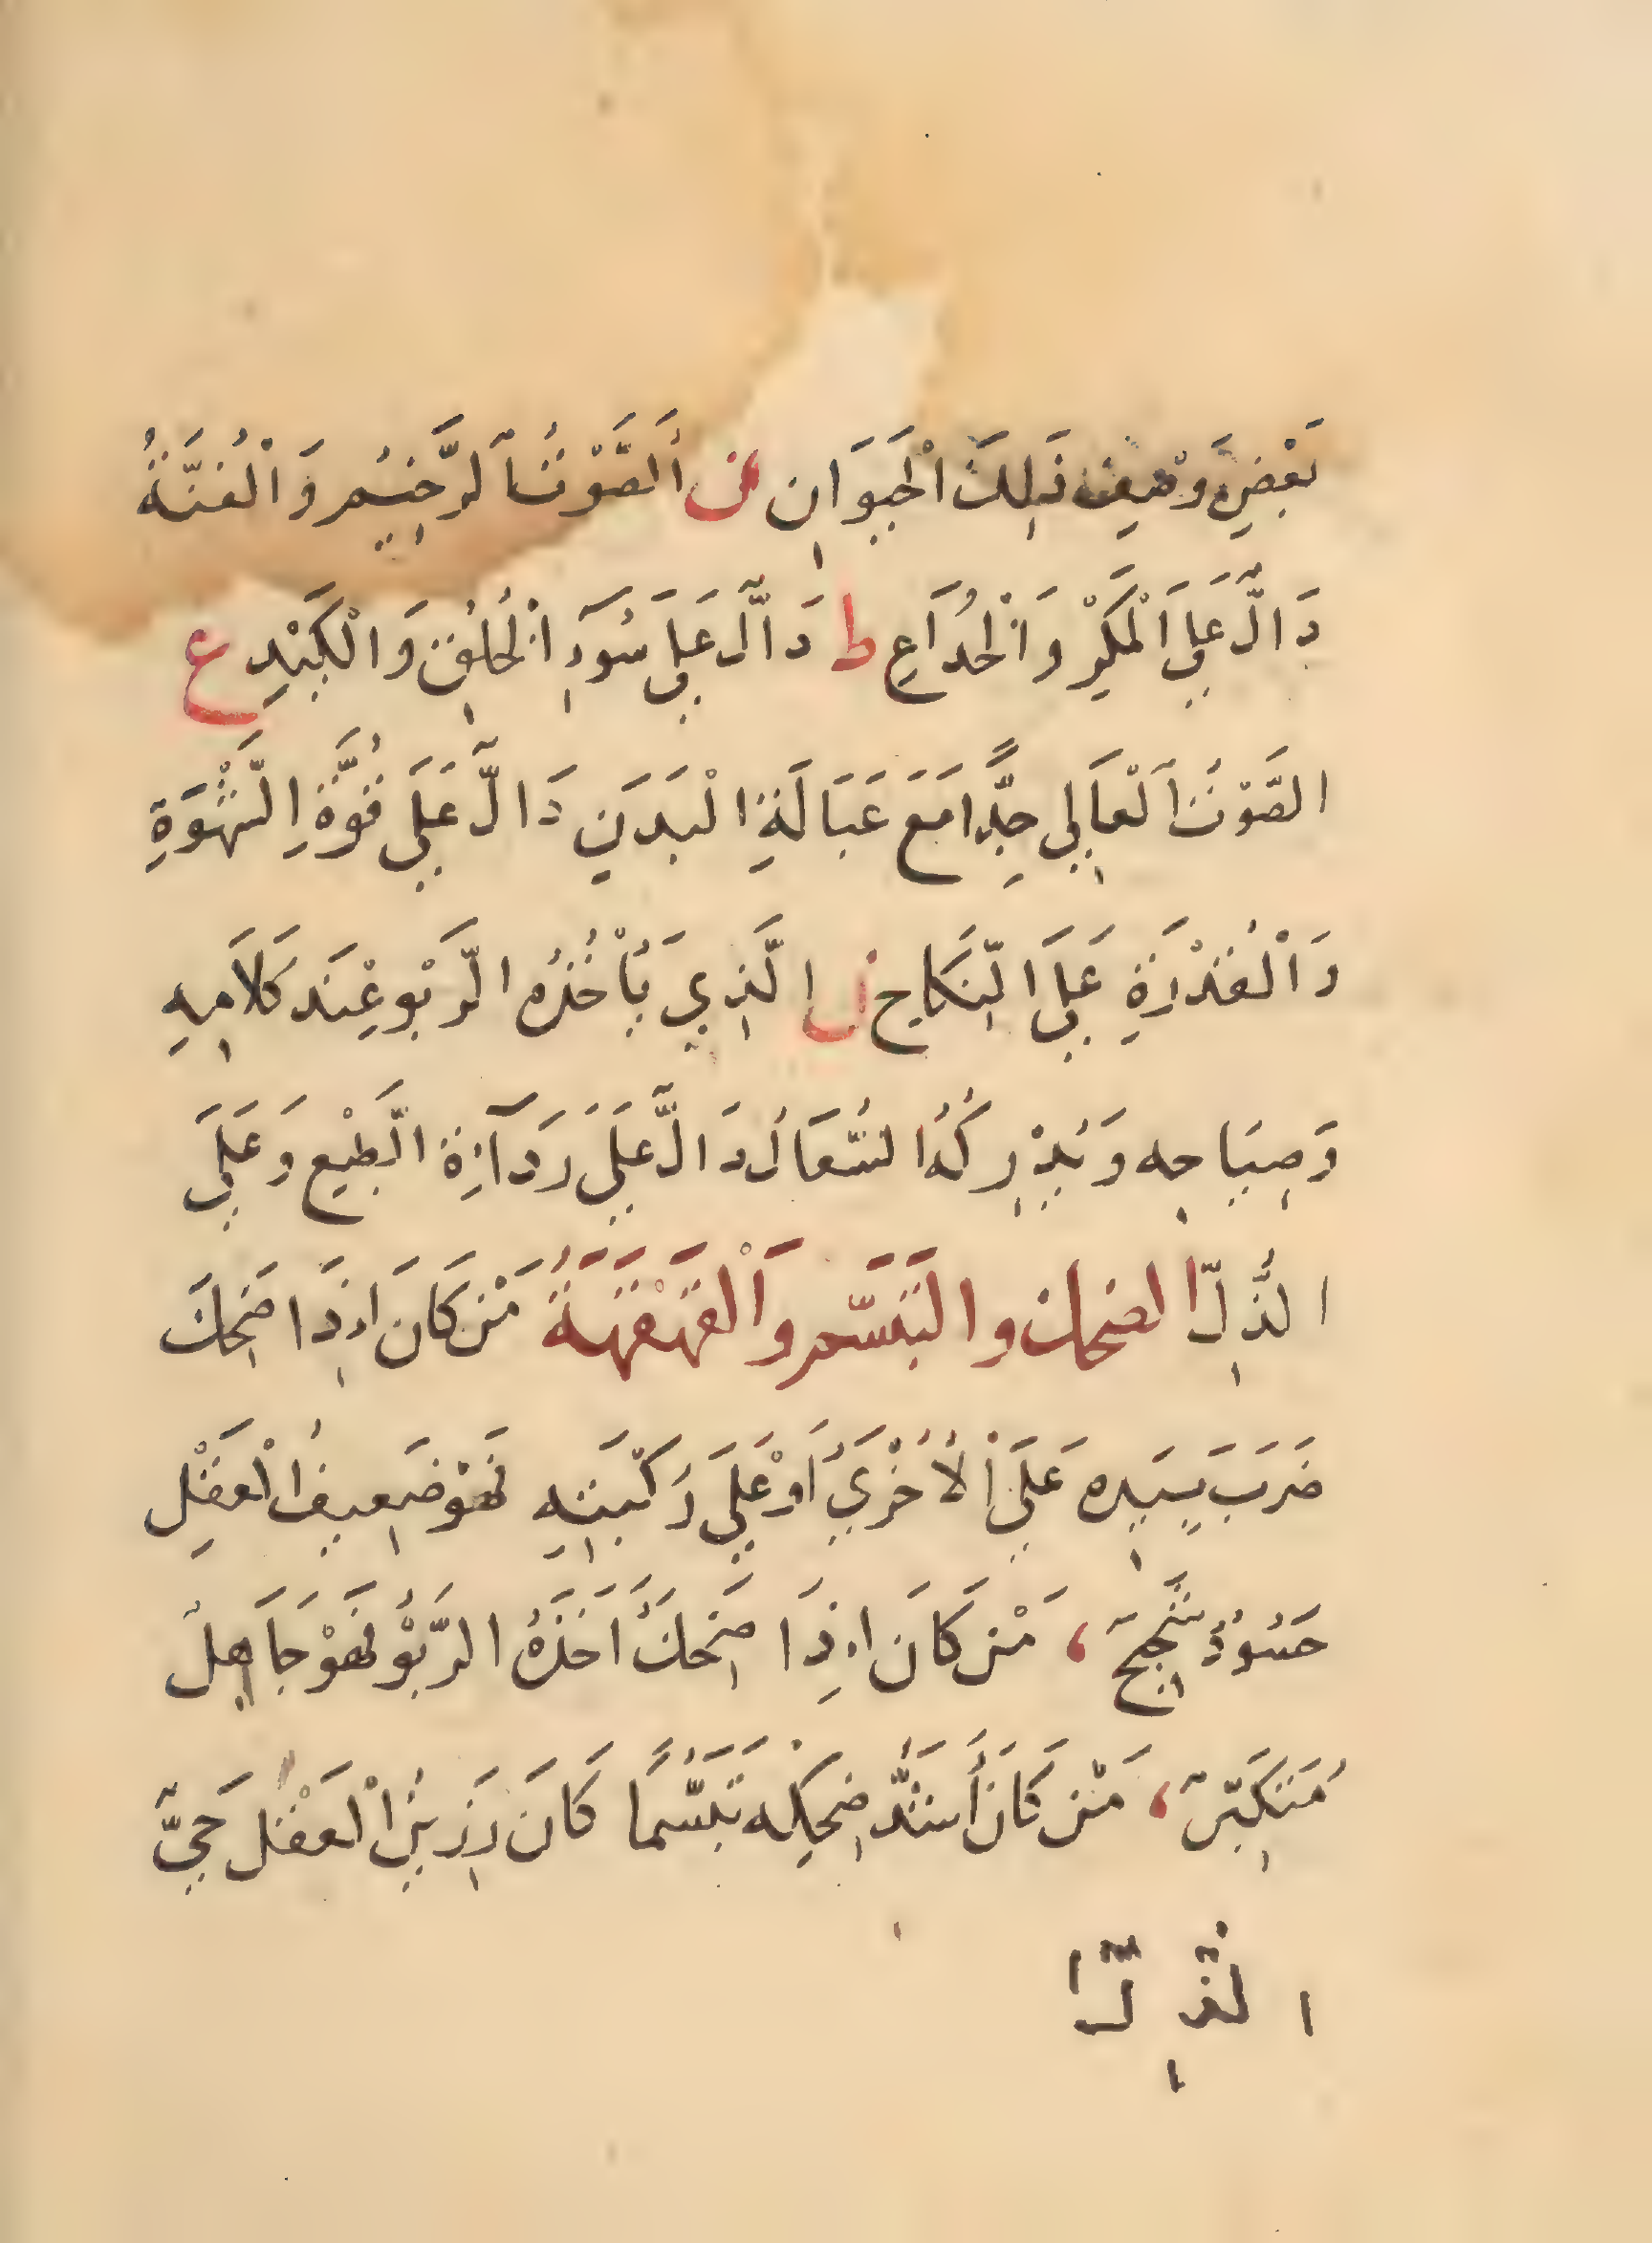 بَعْضِ وَصْفِ ذَلِكَ الْحَيَوَانِ ن اَلصَّوْتُ اَلرَّخِيْمُ وَالْغُنَّةُ
دَالٌّ عَلَى اَلْمَكْرِ وَاَلْخُدَاعِ ط دَآلٌّ عَلَى سُوۤءِ اَلْخُلُقِ وَالْكَيْدِ ع
الصَّوْتُ اَلْعَالِي جِدًّا مَعَ عَبَالَةِ الْبَدَنِ دَالٌّ عَلَى قُوَّةِ الشَّهْوَةِ
وَالْقُدْرَةِ عَلَى النِّكَاحِ ن الَّذِي يَأْخُذُهُ الرَّبْو عِنْدَ كَلَامِهِ
وَصِيَاحِه وَيُدْرِكُهُ السُّعَالُ دَالٌّ عَلَى رَدَآءَةِ الطَّبْعِ وَعَلَى
الذُّلِّ الضحك والتَبَسّم وَاَلْقَهْقَهَةُ مَنْ كَانَ اِذَا ضَحِكَ
ضَرَبَ بِيَدِه عَلَى اْلأُخْرَى أَوْ عَلَى رُكْبَتِهِ فَهْوَ ضَعِيفُ الْعَقْلِ
حَسُوْدٌ شَحِيحٌ ، مَنْ كَانَ اِذَا ضَحِكَ أَخَذَهُ الرَّبْوُ فَهْوَ جَاهِلٌ
مُتَكَبِّرٌ ، مَنْ كَانَ أَشَدُّ ضِحْكِه تَبَسُّمًا كَانَ رَزِينَ الْعَقْلِ حَيِيٌّ
الذّلّا